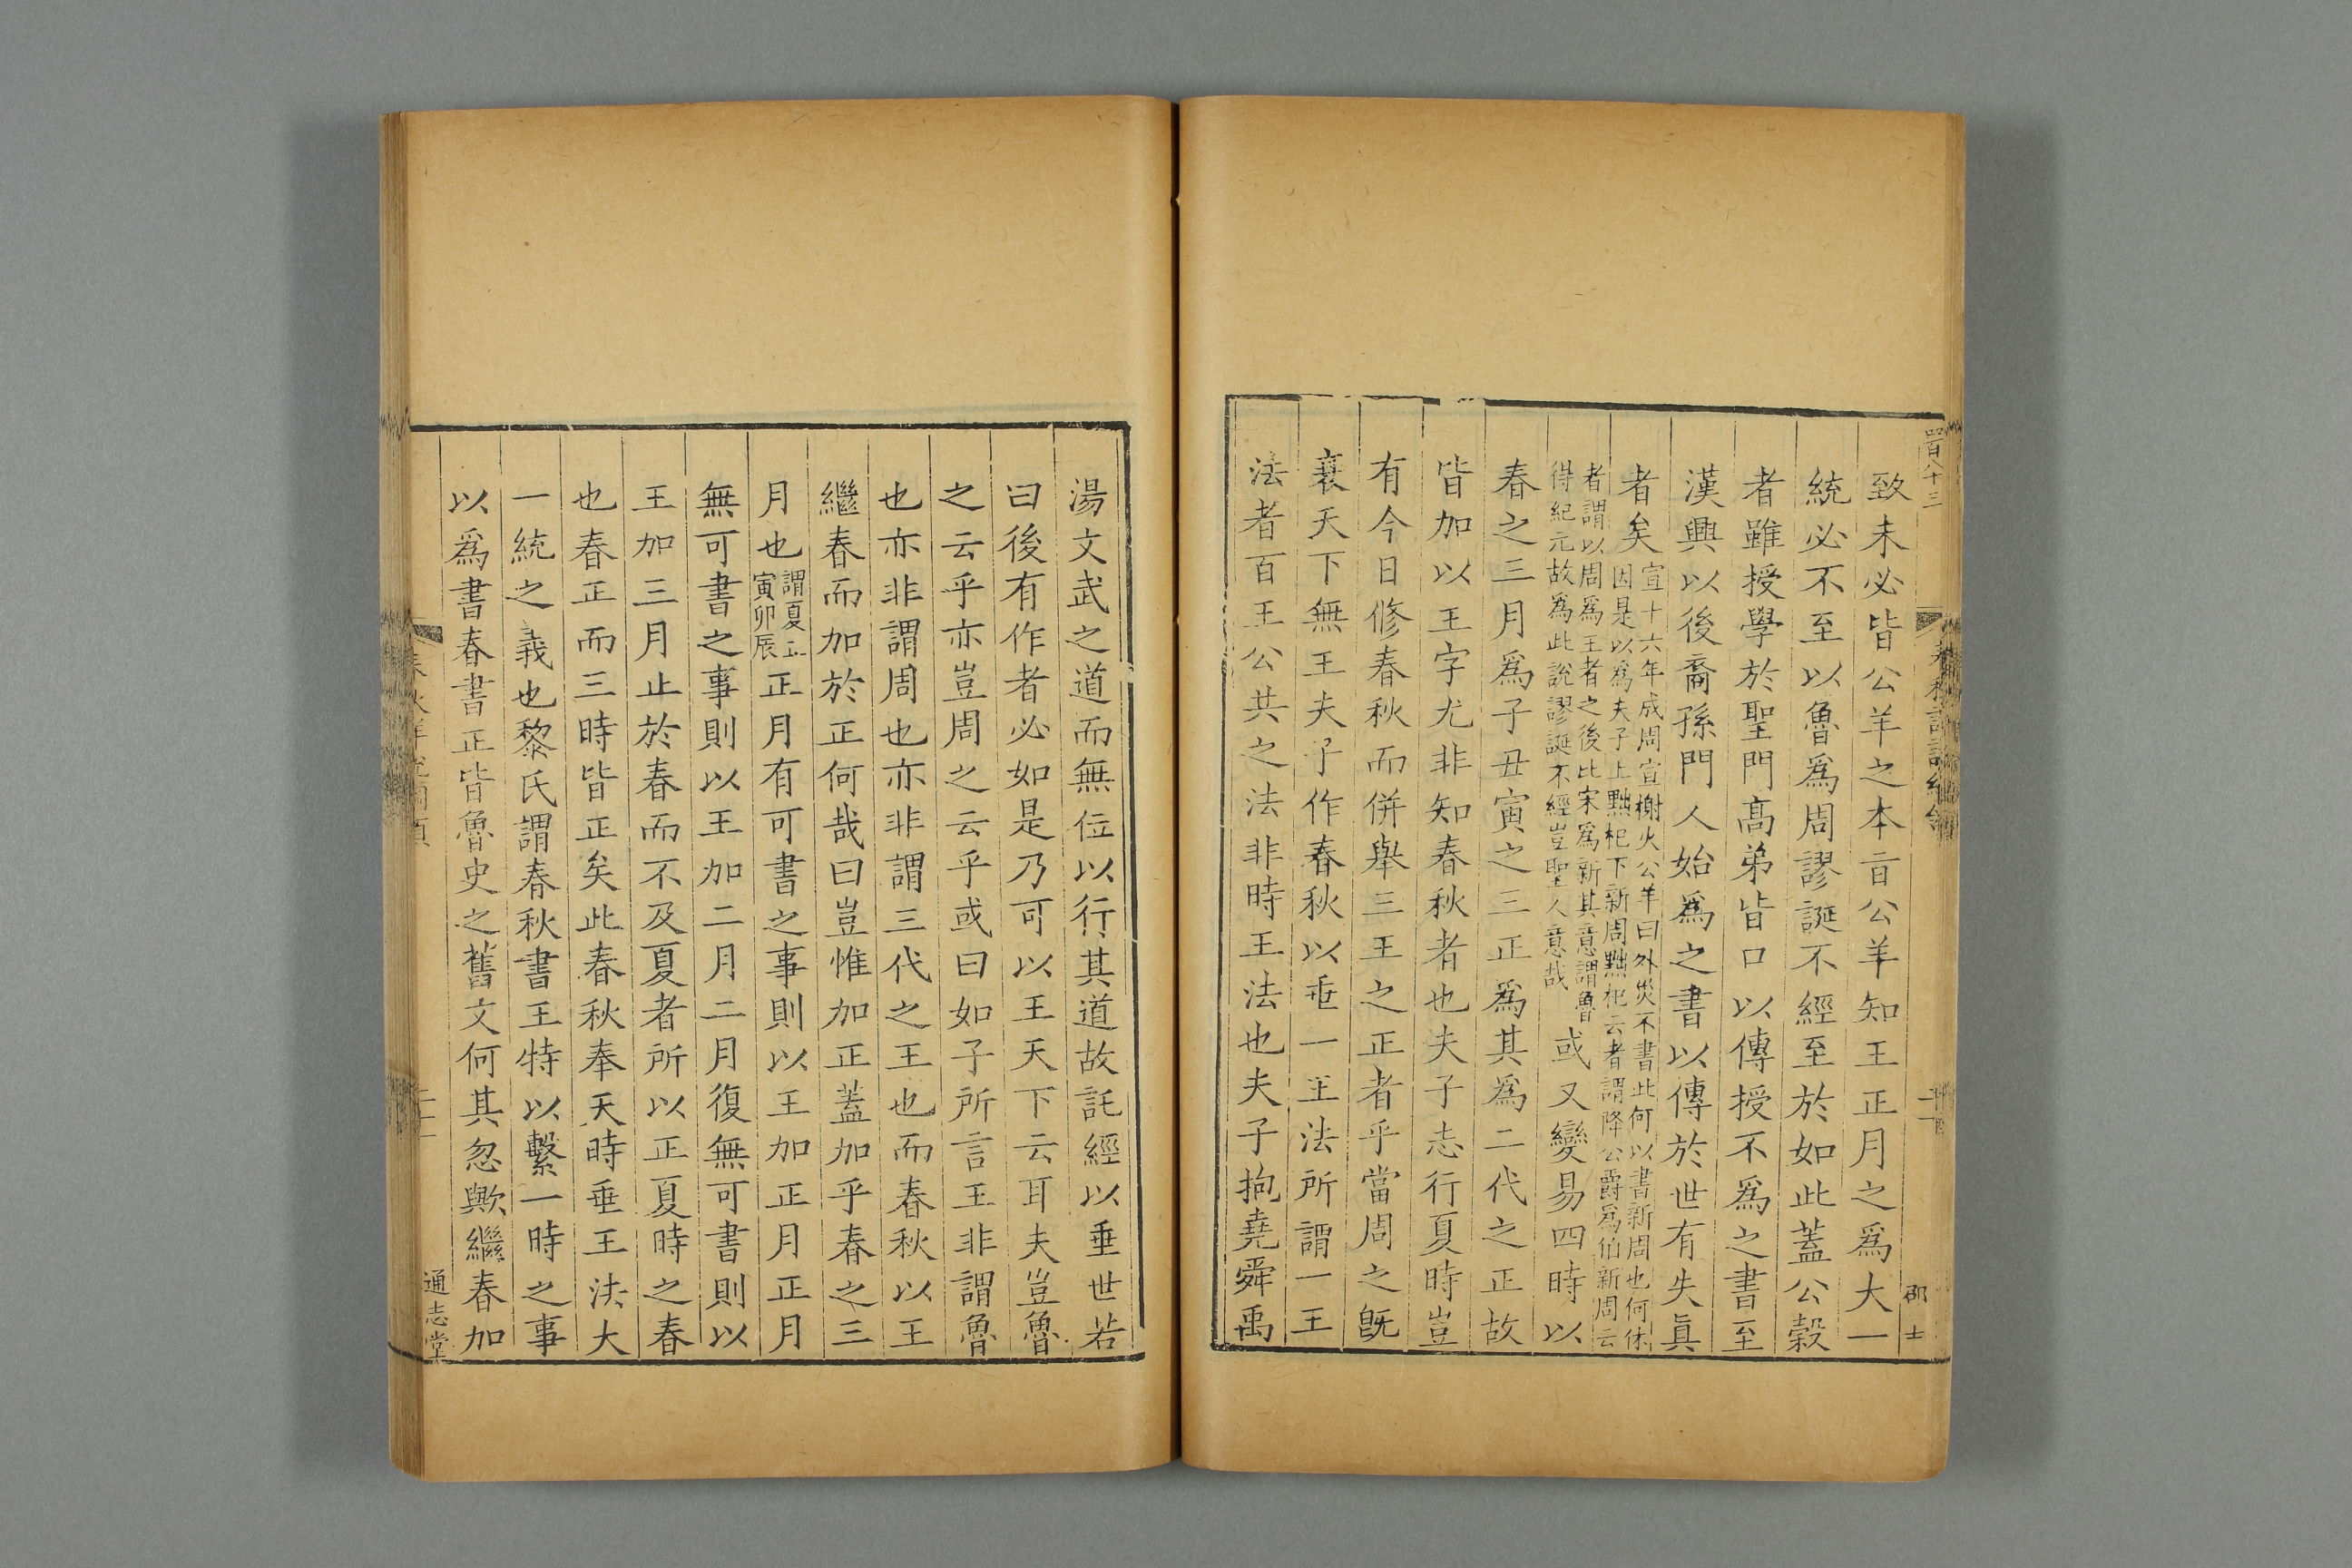 致未必皆公羊之本旨公羊知王正月之爲大一
統必不至以魯爲周謬誕不經至於如此蓋公穀
者雖授學於聖門高弟皆口以傳授不爲之書至
漢興以後裔孫門人始爲之書以傳於世有失眞
者矣宣十六年成周宣榭火公羊曰外災不書此何以書新周也何休
因是以爲夫子上黜杞下新周黜杞云者謂降公爵爲伯新周云
者謂以周爲王者之後比宋爲新其意謂魯
得紀元故爲此說謬誕不經豈聖人意哉或又變易四時以
春之三月爲子丑寅之三正爲其爲二代之正故
皆加以王字尤非知春秋者也夫子志行夏時豈
有今日修春秋而併舉三王之正者乎當周之旣
衰天下無王夫子作春秋以垂一王法所謂一王
法者百王公共之法非時王法也夫子抱堯舜禹
湯文武之道而無位以行其道故託經以垂世若
曰後有作者必如是乃可以王天下云耳夫豈魯
之云乎亦豈周之云乎或曰如子所言王非謂魯
也亦非謂周也亦非謂三代之王也而春秋以王
繼春而加於正何哉曰豈惟加正蓋加乎春之三
月也謂夏正
寅卯辰正月有可書之事則以王加正月正月
無可書之事則以王加二月二月復無可書則以
王加三月止於春而不及夏者所以正夏時之春
也春正而三時皆正矣此春秋奉天時垂王法大
一統之義也黎氏謂春秋書王特以繫一時之事
以爲書春書正皆魯史之舊文何其忽歟繼春加
通志堂